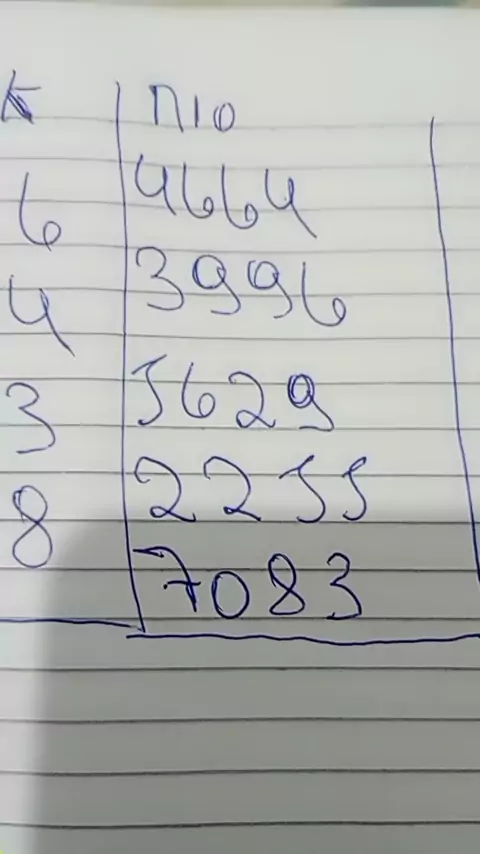 K П10
6 4664
4 3996
3 5629
8 2255
7083